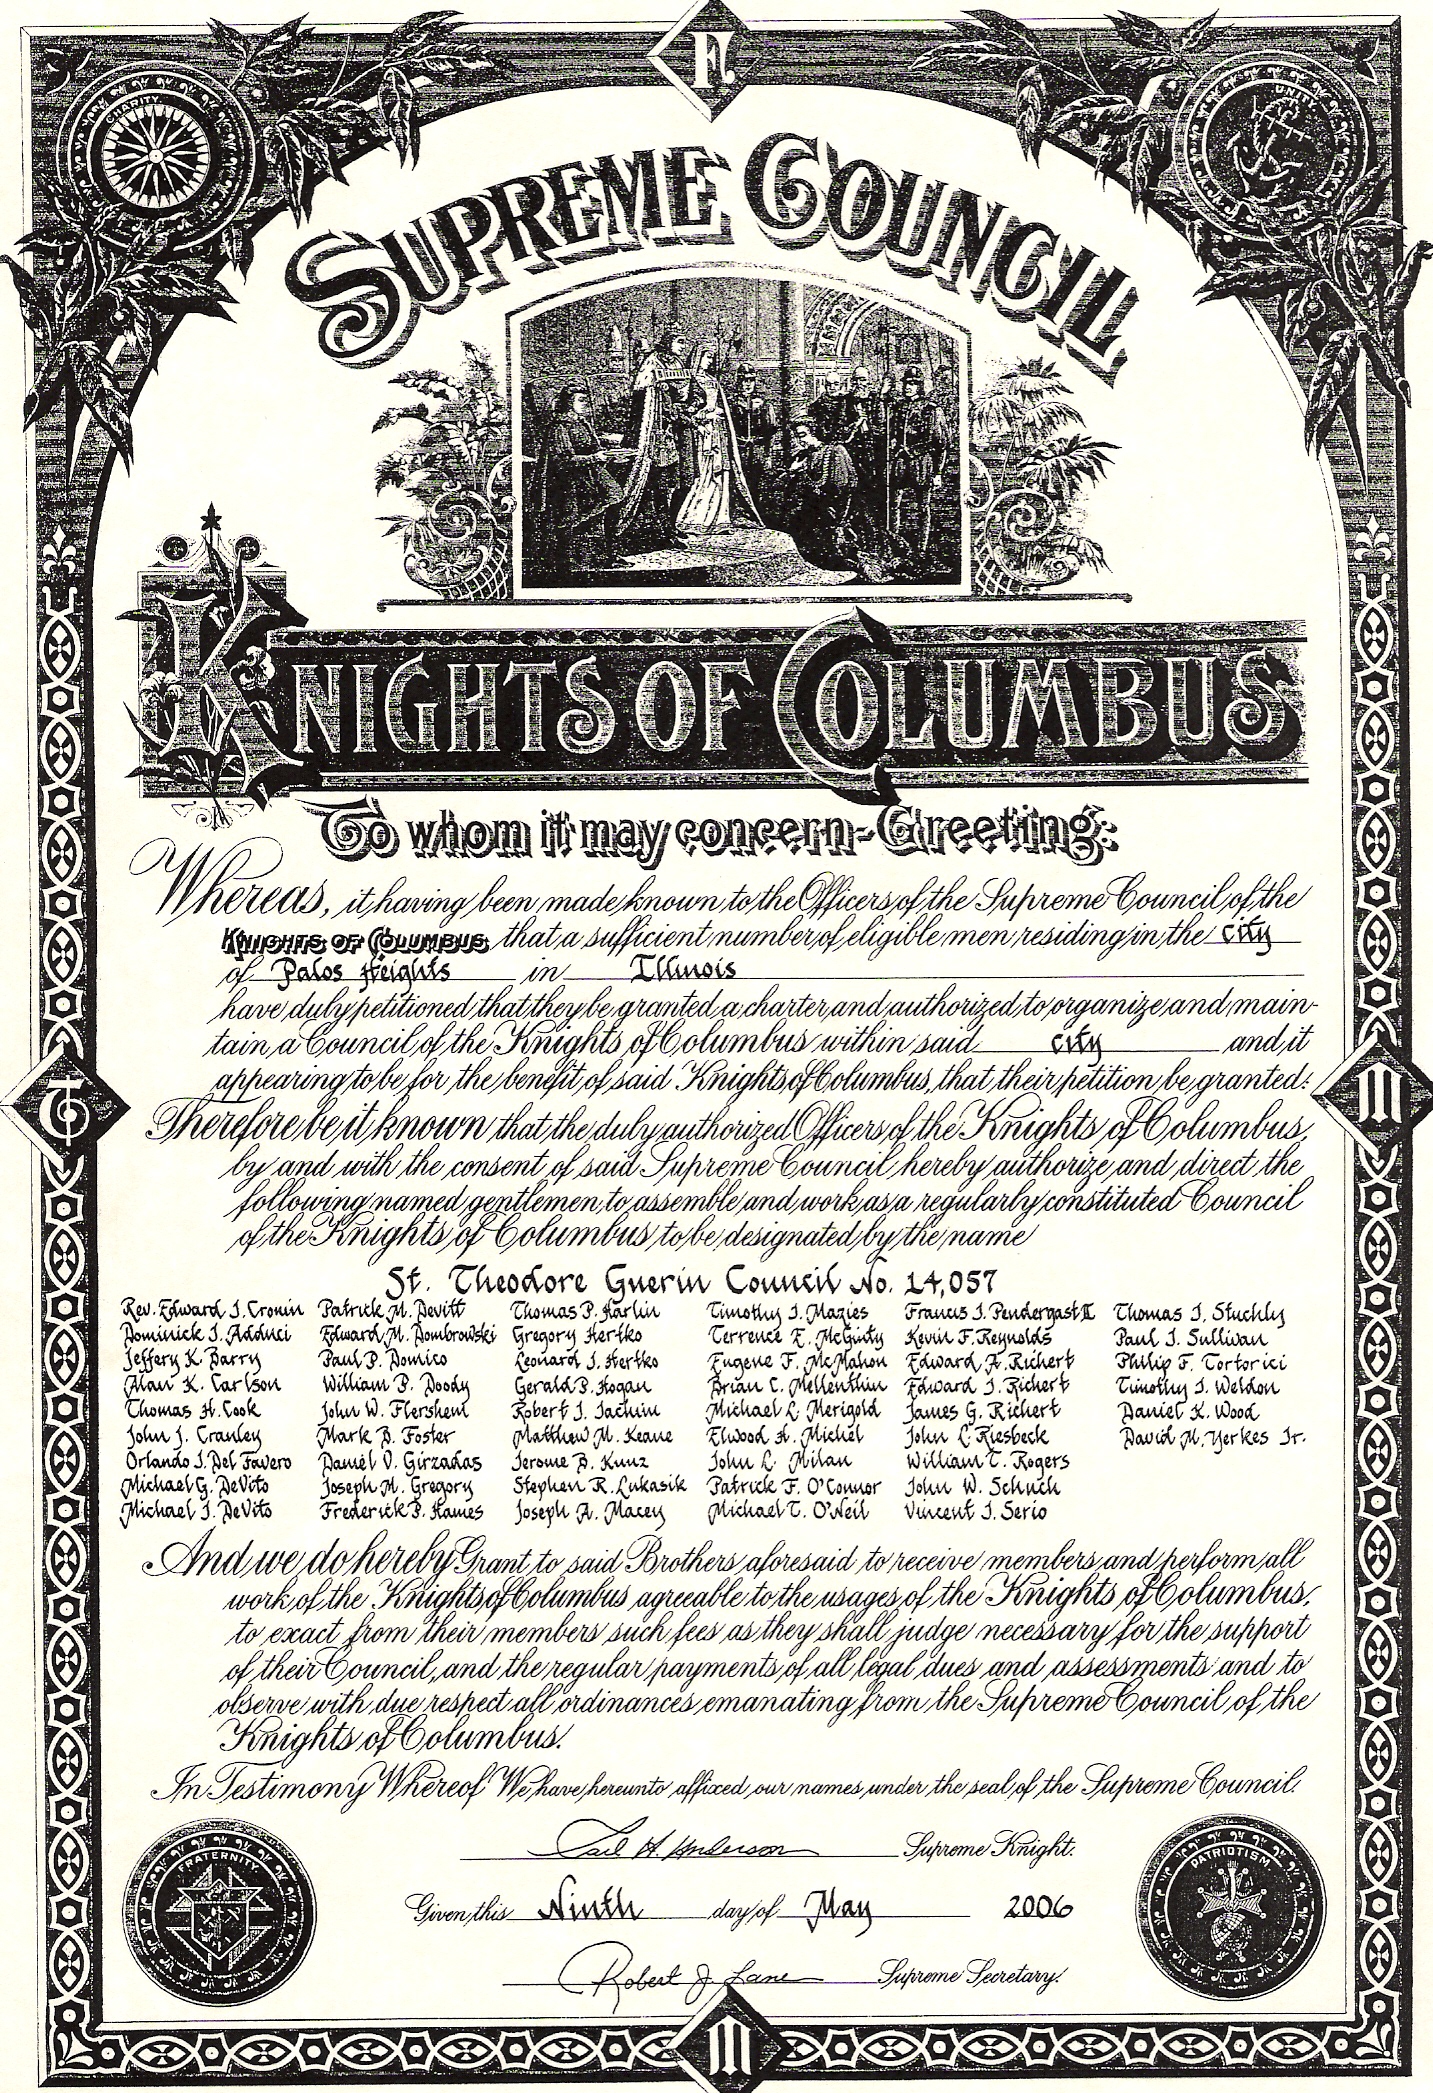 F.
CHARITY
UNITY
SUPREME COUNCIL
KNIGHTS OF COLUMBUS
To whom it may concern-Greeting:
Whereas, it having been made known to the Officers of the Supreme Council of the
KNIGHTS OF COLUMBUS that a sufficient number of eligible men residing in the city
of Palos Heights in Illinois
have duly petitioned that they be granted a charter and authorized to organize and main-
tain a Council of the Knights of Columbus within said city and it
appearing to be for the benefit of said Knights of Columbus, that their petition be granted:
Therefore be it known that the duly authorized Officers of the Knights of Columbus,
by and with the consent of said Supreme Council hereby authorize and direct the
following named gentlemen to assemble and work as a regularly constituted Council
of the Knights of Columbus to be designated by the name
St. Theodore Guerin Council No. 14,057
Rev. Edward J. Cronin Patrick M. Devitt Thomas P. Harlin Timothy J. Mazies Francis J. Pendergast II Thomas J. Stuchly
Dominick J. Adduci Edward M. Dombrowski Gregory Hertko Terrence E. McGinty Kevin F. Reynolds Paul J. Sullivan
Jeffery K. Barry Paul P. Domico Leonard J. Hertko Eugene F. McMahon Edward A. Richert Philip F. Tortorici
Alan K. Carlson William P. Doody Gerald P. Hogan Brian C. Mellenthin Edward J. Richert Timothy J. Weldon
Thomas H. Cook John W. Flershem Robert J. Jachim Michael L. Merigold James G. Richert Daniel K. Wood
John J. Cranley Mark B. Foster Matthew M. Keane Elwood H. Michel John L. Riesbeck David M. Yerkes Jr.
Orlando J. Del Favero Daniel V. Girzadas Jerome B. Kunz John L. Milan William T. Rogers
Michael G. DeVito Joseph M. Gregory Stephen R. Lukasik Patrick F. O'Connor John W. Schuch
Michael J. DeVito Frederick P. Hames Joseph A. Macey Michael T. O'Neil Vincent J. Serio
And we do hereby Grant, to said Brothers aforesaid to receive members and perform all
work of the Knights of Columbus agreeable to the usages of the Knights of Columbus,
to exact from their members such fees as they shall judge necessary for the support
of their Council, and the regular payments of all legal dues and assessments and to
observe with due respect all ordinances emanating from the Supreme Council of the
Knights of Columbus.
In Testimony Whereof We have hereunto affixed our names under the seal of the Supreme Council.
Carl A. Anderson Supreme Knight.
FRATERNITY
PATRIOTISM
Given this Ninth day of May 2006
Robert J. Lane Supreme Secretary.